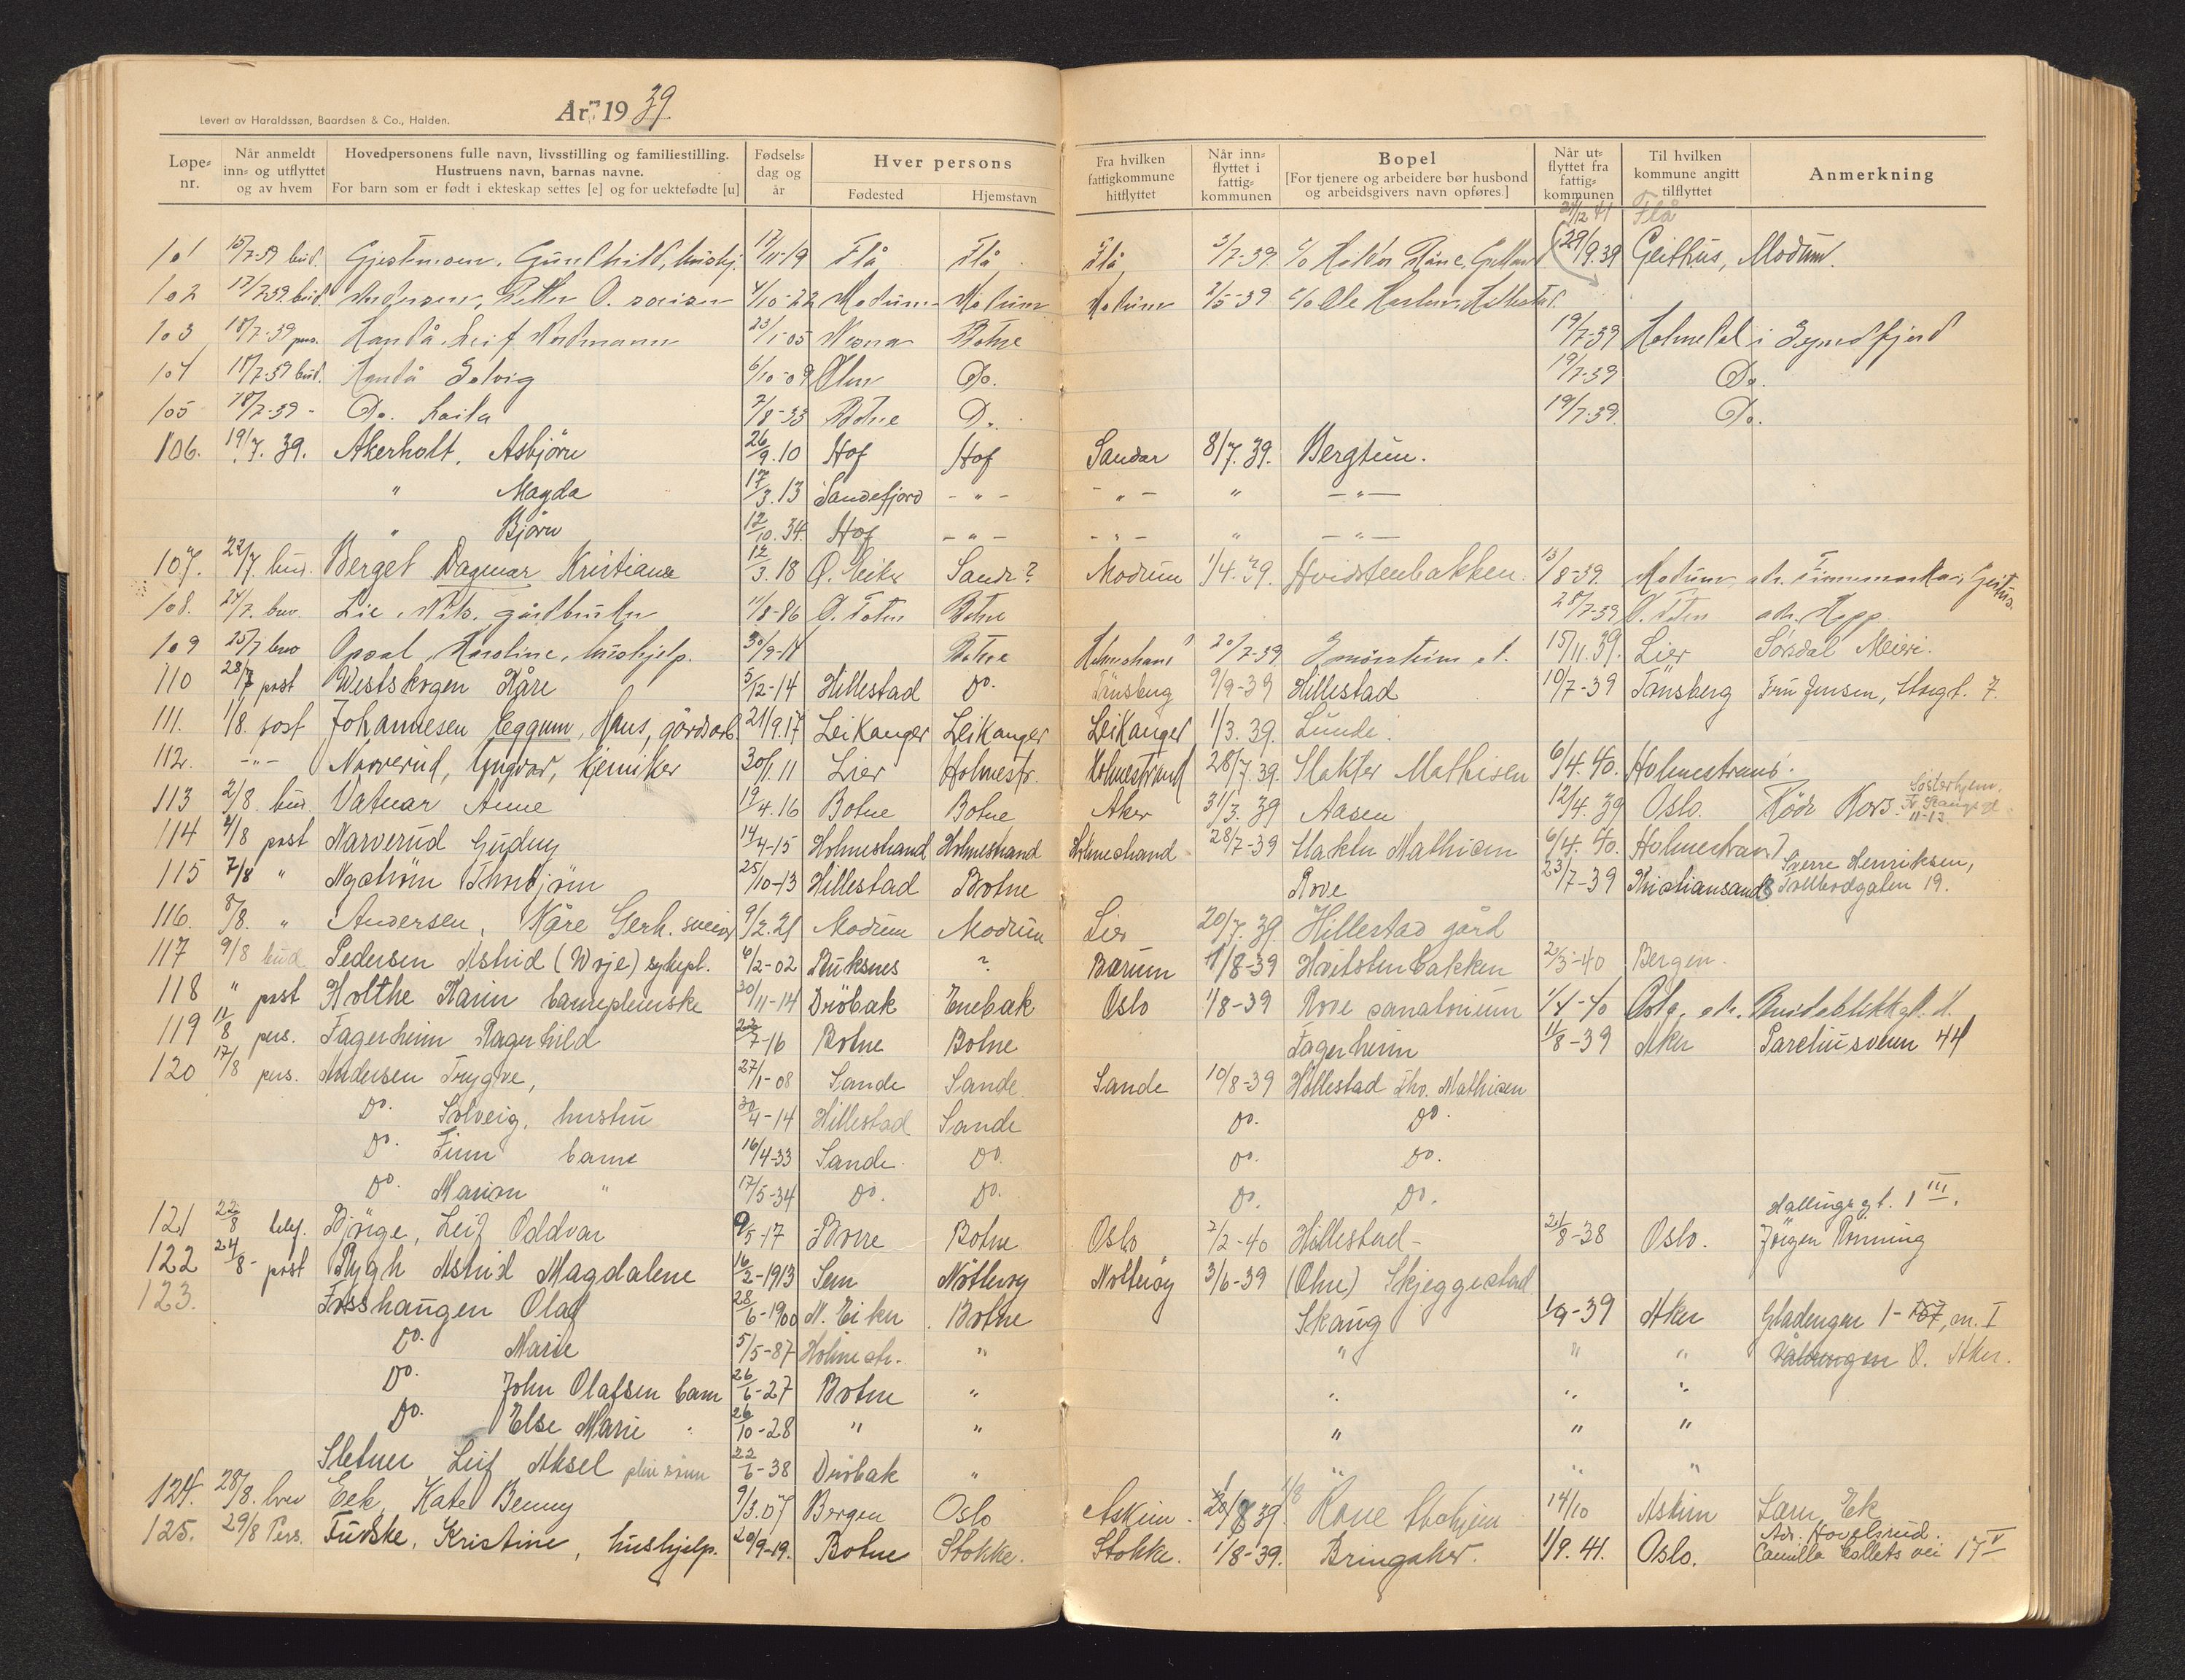 År 1939.
Levert av Haraldssøn, Baardsen & Co., Halden.
Løpe-nr. Når anmeldt inn- og utflyttet og av hvem Hovedpersonens fulle navn, livsstilling og familiestilling. Hustruens navn, barnas navne. For barn som er født i ekteskap settes [e] og for uektefødte [u] Fødsels-dag og år Hver persons Fødested Hjemstavn Fra hvilken fattigkommune hitflyttet Når inn-flyttet i fattig-kommunen Bopel [For tjenere og arbeidere bør husbond og arbeidsgivers navn opføres.] Når ut-flyttet fra fattig-kommunen Til hvilken kommune angitt tilflyttet Anmerkning
21/12 41 Flå
101 15/7-39 bud. Gjestmoen, Gunhild, hushj. 17/11-19 Flå Flå Flå 3/7-39 c/o 29/9.39 Geithus, Modum.
102 17/7 39. bud. Andersen, O. 4/10-22 Modum Modum Modum 2/5-39 c/o Ole
103 18/7-39 pers. Handå Leif Nordmann 23/1-05 Nesna Botne 19/7-39 Holmedal i
104 18/7-39 bud. Handå Solvig 6/10-09 Do. 19/7-39 Do.
105 18/7-39 - Do. Laila 7/8-33 Botne Do. 19/7-39. Do.
106. 19/7. 39. Akerholt, Asbjørn 26/9.10 Hof Hof Sandar 8/7.39. Bergtun.
" Magda 17/3.13 Sandefjord - " - - " - " - " -
" Bjørn 12/10.34. Hof - " - - " - " - " -
107. 22/7. bud. Berget Dagmar Kristiane 12/3.18 Ø. Eiker Sand? Modum 1/4.39. Hvidstenbakken. 13/8-39. Modum, adr.
108. 24/7. brev. Lie, Nils, gårdbruker 11/8-86 Ø. Toten Botne 28/7-39 Ø. Toten adr. Kapp
109 25/7 brev Opsal, Karoline, hushjelp. 30/9-11 Botne Holmestrand 20/7-39 15/11.39. Lier Sørsdal Meieri.
110 28/7 post Westskogen Kåre 5/12-14 Hillestad do. Tønsberg 9/9-39 Hillestad 10/7-39 Tønsberg Fru Jensen, Storgt. 7.
111. 1/8. post Johannesen Eggum, Hans, gårdsarb. 21/9.17 Leikanger Leikanger Leikanger 1/3.39. Lunde.
112. - " - Narverud, Yngvar, kjemiker 30/1.11 Lier Holmestr. Holmestrand 28/7.39. Slakter Mathisen 6/4.40. Holmestrand.
113 2/8. bud Vatnar Anne 19/4.16 Botne Botne Aker 31/3.39 Aasen 12/4.39 Oslo. Røde Kors. Søsterhjem. 11-13
114 4/8 post Narverud Gudny 14/4-15 Holmestrand Holmestrand Holmestrand 28/7-39 Slakter Mathisen 6/4.40. Holmestrand
115 7/8 " Nystrøm Thorbjørn 25/10-13 Hillestad Botne Rove 23/7-39 Kristiansand S Sverre Henriksen, Tollbodgaten 19.
116. 8/8. " Andersen, Kåre Gerh. sveiser 9/2.21 Modum Modum Lier 20/7.39. Hillestad gård
117 9/8 bud Pedersen Astrid (Woje) sykepl. 6/2-02 Buksnes ? Bærum 1/8-39 Hvitstenbakken 2/3-40 Bergen.
118 " post Holthe Karin barnepleierske 30/11-14 Drøbak Enebak Oslo 1/8-39 Rove sanatorium 1/4-40 Oslo, adr.
119 11/8 pers. Fagerheim Ragnhild 22/7-16 Botne Botne Fagerheim 11/8-39 Aker Sarelius veien 44
120 17/8 pers. Andersen Trygve, 27/1-08 Sande Sande Sande 10/8-39 Hillestad Tho. Mathisen
Do. Solveig, hustru 30/4-14 Hillestad Sande do. do.
Do. Finn barn 16/4-33 Sande do. do. do.
Do. Marion " 17/5-34 do. do. do. do.
Hallings gt. 1 III.
121 22/8 telef. Bjørge, Leif Oddvar 9/5-17 Borre Botne Oslo 2/2-40 Hillestad - 21/8-38 Oslo. Jørgen Rønning
122 24/8- post Rygh Astrid Magdalene 16/2-1913 Sem Nøtterøy Nøtterøy 3/6-39 (Olne) Skjeggestad
123. Fosshaugen Olaf 28/6-1900 N. Eiker Botne Skaug 1/9-39 Aker Gladengen 1-
Do. Marie 5/5-87 Holmestr. " " " " Vålerengen Ø. Aker.
Do. John Olafsen barn 26/6-27 Botne " " " "
Do. Else Marie " 26/10-28 " " " " "
Sletner Leif Aksel pleiesønn 22/6-38 Drøbak " " " "
124. 28/8. brev Eek, Kate Benny 9/3.07 Bergen Oslo Askim 1/8 39. Rove 14/10 Askim Lars Ek Adr. Hovelsrud.
125. 29/8 Pers. Fudske, Kristine, hushjelp. 20/9-19. Botne Stokke. Stokke. 1/8-39. Bringaker. 1/9.41. Oslo. Camilla Colletts vei 17 V